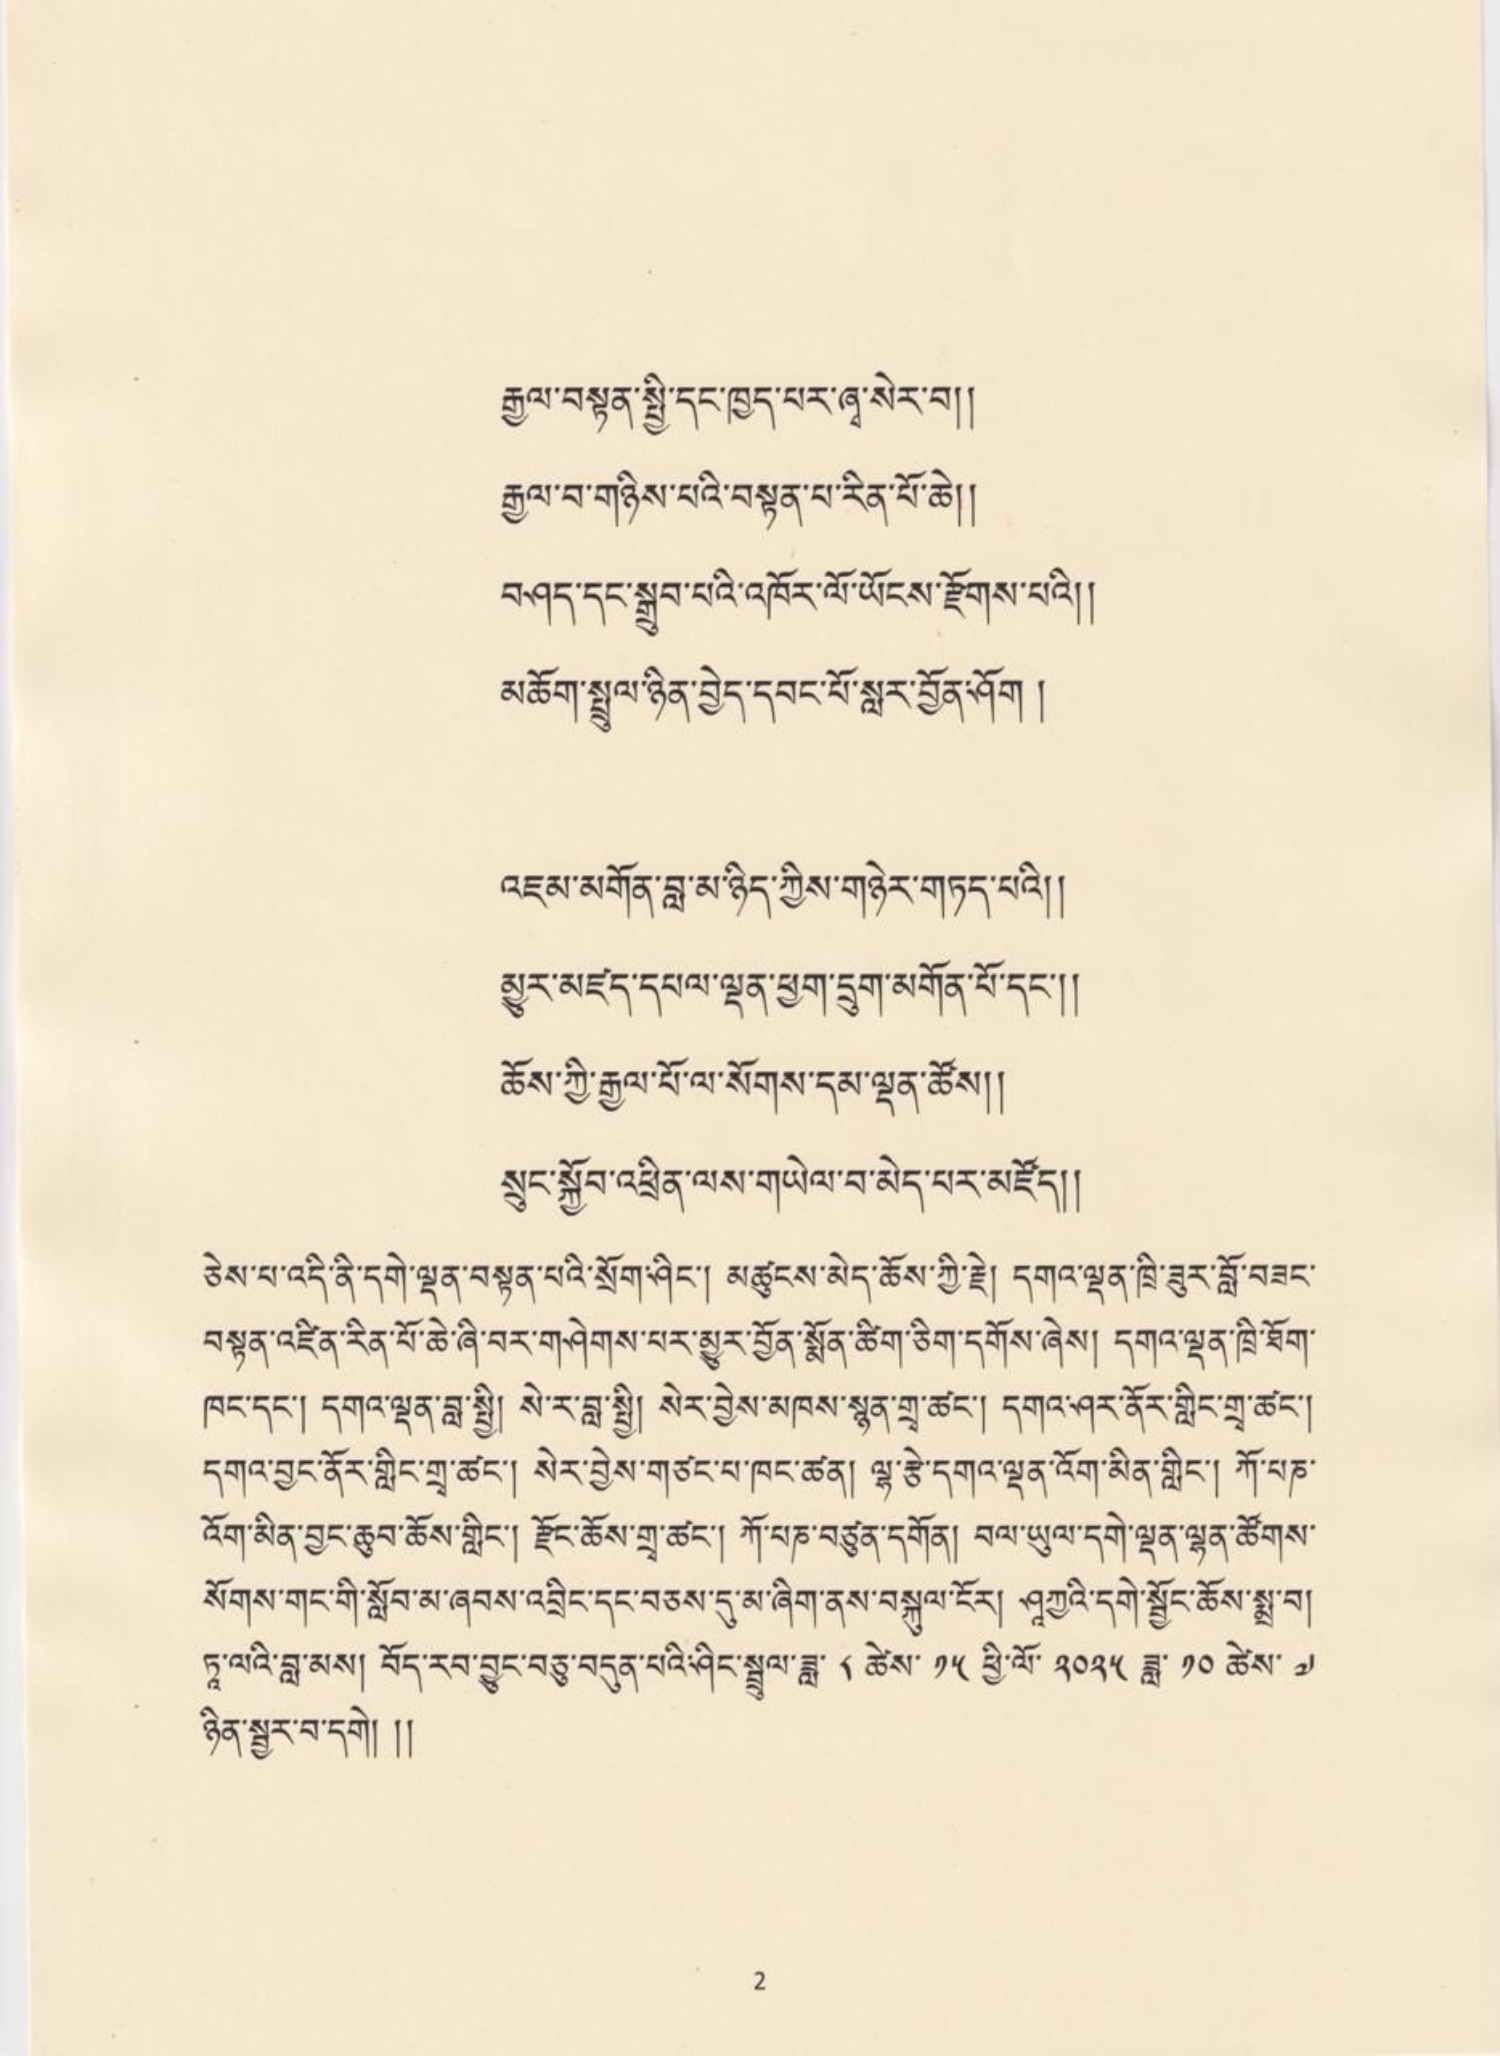 རྒྱལ་བསྟན་སྤྱི་དང་ཁྱད་པར་ཞྭ་སེར་བ།།
རྒྱལ་བ་གཉིས་པའི་བསྟན་པ་རིན་པོ་ཆེ།།
བཤད་དང་སྒྲུབ་པའི་འཁོར་ལོ་ཡོངས་རྫོགས་པའི།།
མཆོག་སྤྲུལ་ཉིན་བྱེད་དབང་པོ་སླར་བྱོན་ཤོག །
འཇམ་མགོན་བླ་མ་ཉིད་ཀྱིས་གཉེར་གཏད་པའི།།
མྱུར་མཛད་དཔལ་ལྡན་ཕྱག་དྲུག་མགོན་པོ་དང་།།
ཆོས་ཀྱི་རྒྱལ་པོ་ལ་སོགས་དམ་ལྡན་ཚོས།།
སྲུང་སྐྱོབ་འཕྲིན་ལས་གཡེལ་བ་མེད་པར་མཛོད།།
ཅེས་པ་འདི་ནི་དགེ་ལྡན་བསྟན་པའི་སྲོག་ཤིང་། མཚུངས་མེད་ཆོས་ཀྱི་རྗེ། དགའ་ལྡན་ཁྲི་ཟུར་བློ་བཟང་
བསྟན་འཛིན་རིན་པོ་ཆེ་ཞི་བར་གཤེགས་པར་མྱུར་བྱོན་སྨོན་ཚིག་ཅིག་དགོས་ཞེས། དགའ་ལྡན་ཁྲི་ཐོག་
ཁང་དང་། དགའ་ལྡན་བླ་སྤྱི། སེ་ར་བླ་སྤྱི། སེར་བྱེས་མཁས་སྙན་གྲྭ་ཚང་། དགའ་ཤར་ནོར་གླིང་གྲྭ་ཚང་།
དགའ་བྱང་ནོར་གླིང་གྲྭ་ཚང་། སེར་བྱེས་གཙང་པ་ཁང་ཚན། ལྷ་རྩེ་དགའ་ལྡན་འོག་མིན་གླིང་། ཀོ་པཎ་
འོག་མིན་བྱང་ཆུབ་ཆོས་གླིང་། རྫོང་ཆོས་གྲྭ་ཚང་། ཀོ་པཎ་བཙུན་དགོན། བལ་ཡུལ་དགེ་ལྡན་ལྷན་ཚོགས་
སོགས་གང་གི་སློབ་མ་ཞབས་འབྲིང་དང་བཅས་དུ་མ་ཞིག་ནས་བསྐུལ་ངོར། ཤཱཀྱའི་དགེ་སྦྱོང་ཆོས་སྨྲ་བ།
ཏཱ་ལའི་བླ་མས། བོད་རབ་བྱུང་བཅུ་བདུན་པའི་ཤིང་སྦྲུལ་ཟླ་ ༨ ཚེས་ ༡༥ ཕྱི་ལོ་ ༢༠༢༥ ཟླ་ ༡༠ ཚེས་ ༧
ཉིན་སྦྱར་བ་དགེ། །།
2